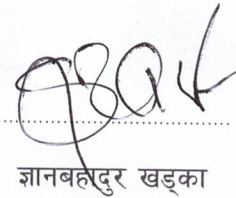 ज्ञानबहादुर खड्का